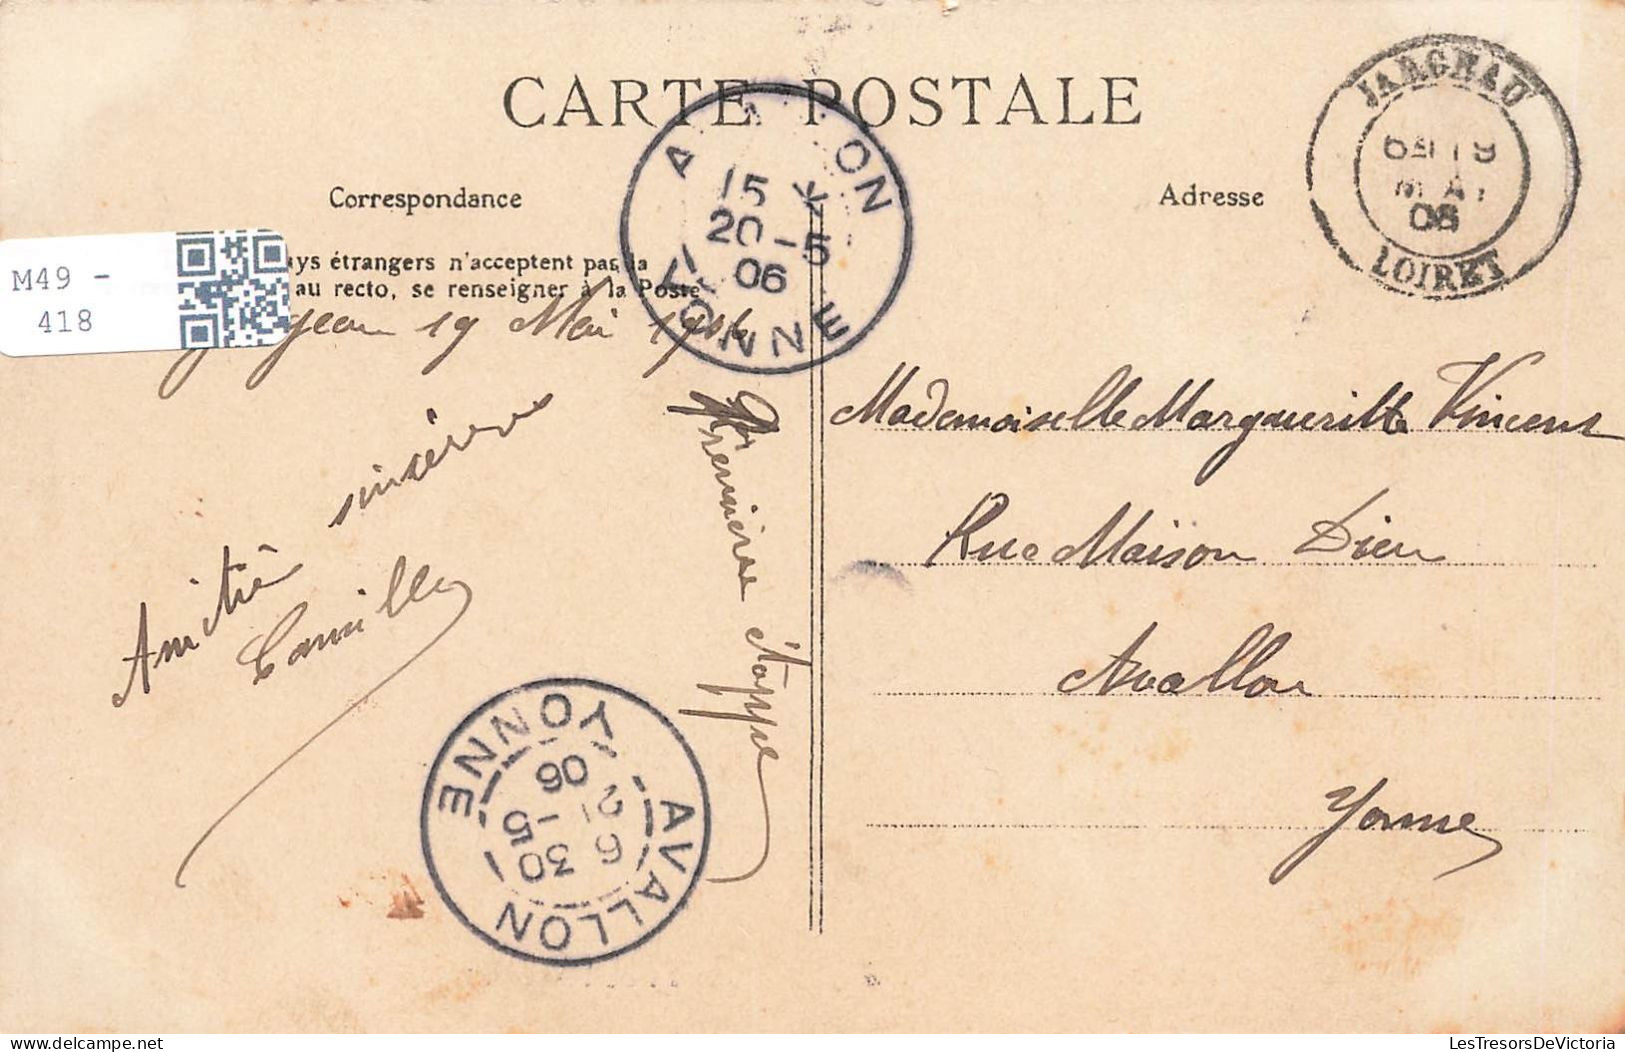 CARTE POSTALE
Correspondance
Adresse
ays étrangers n'acceptent pas la
au recto, se renseigner à la Poste
M49 -
418
JARGEAU
19
MAI
06
LOIRET
A ON
15 *
20 - 5
06
YONNE
19 Mai 1906
Amitié sincère
Camille
Première étappe
Mademoiselle Margueritte Vincent
Rue Maison Dieu
Avallon
Yonne
AVALLON
6 30
21 - 5
06
YONNE
LesTresorsDeVictoria
delcampe.net